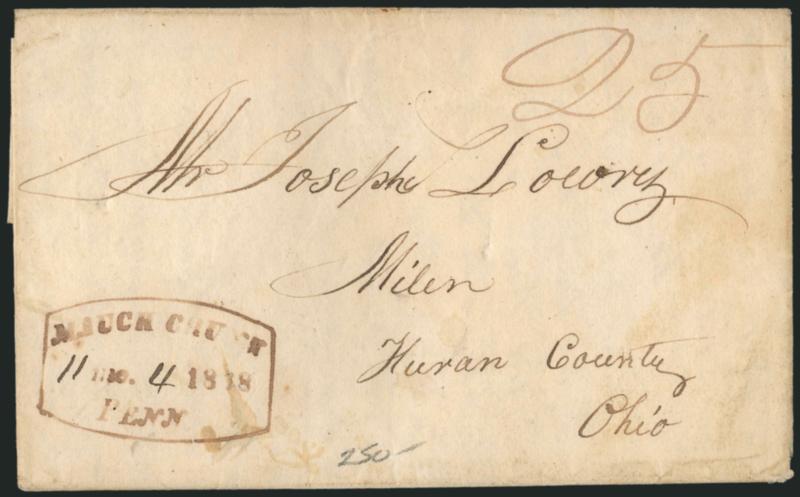 25
Mr Joseph Lowry
Milen
Huran County
Ohio
MAUCH CHUNK
11 mo. 4 1838
PENN
250-